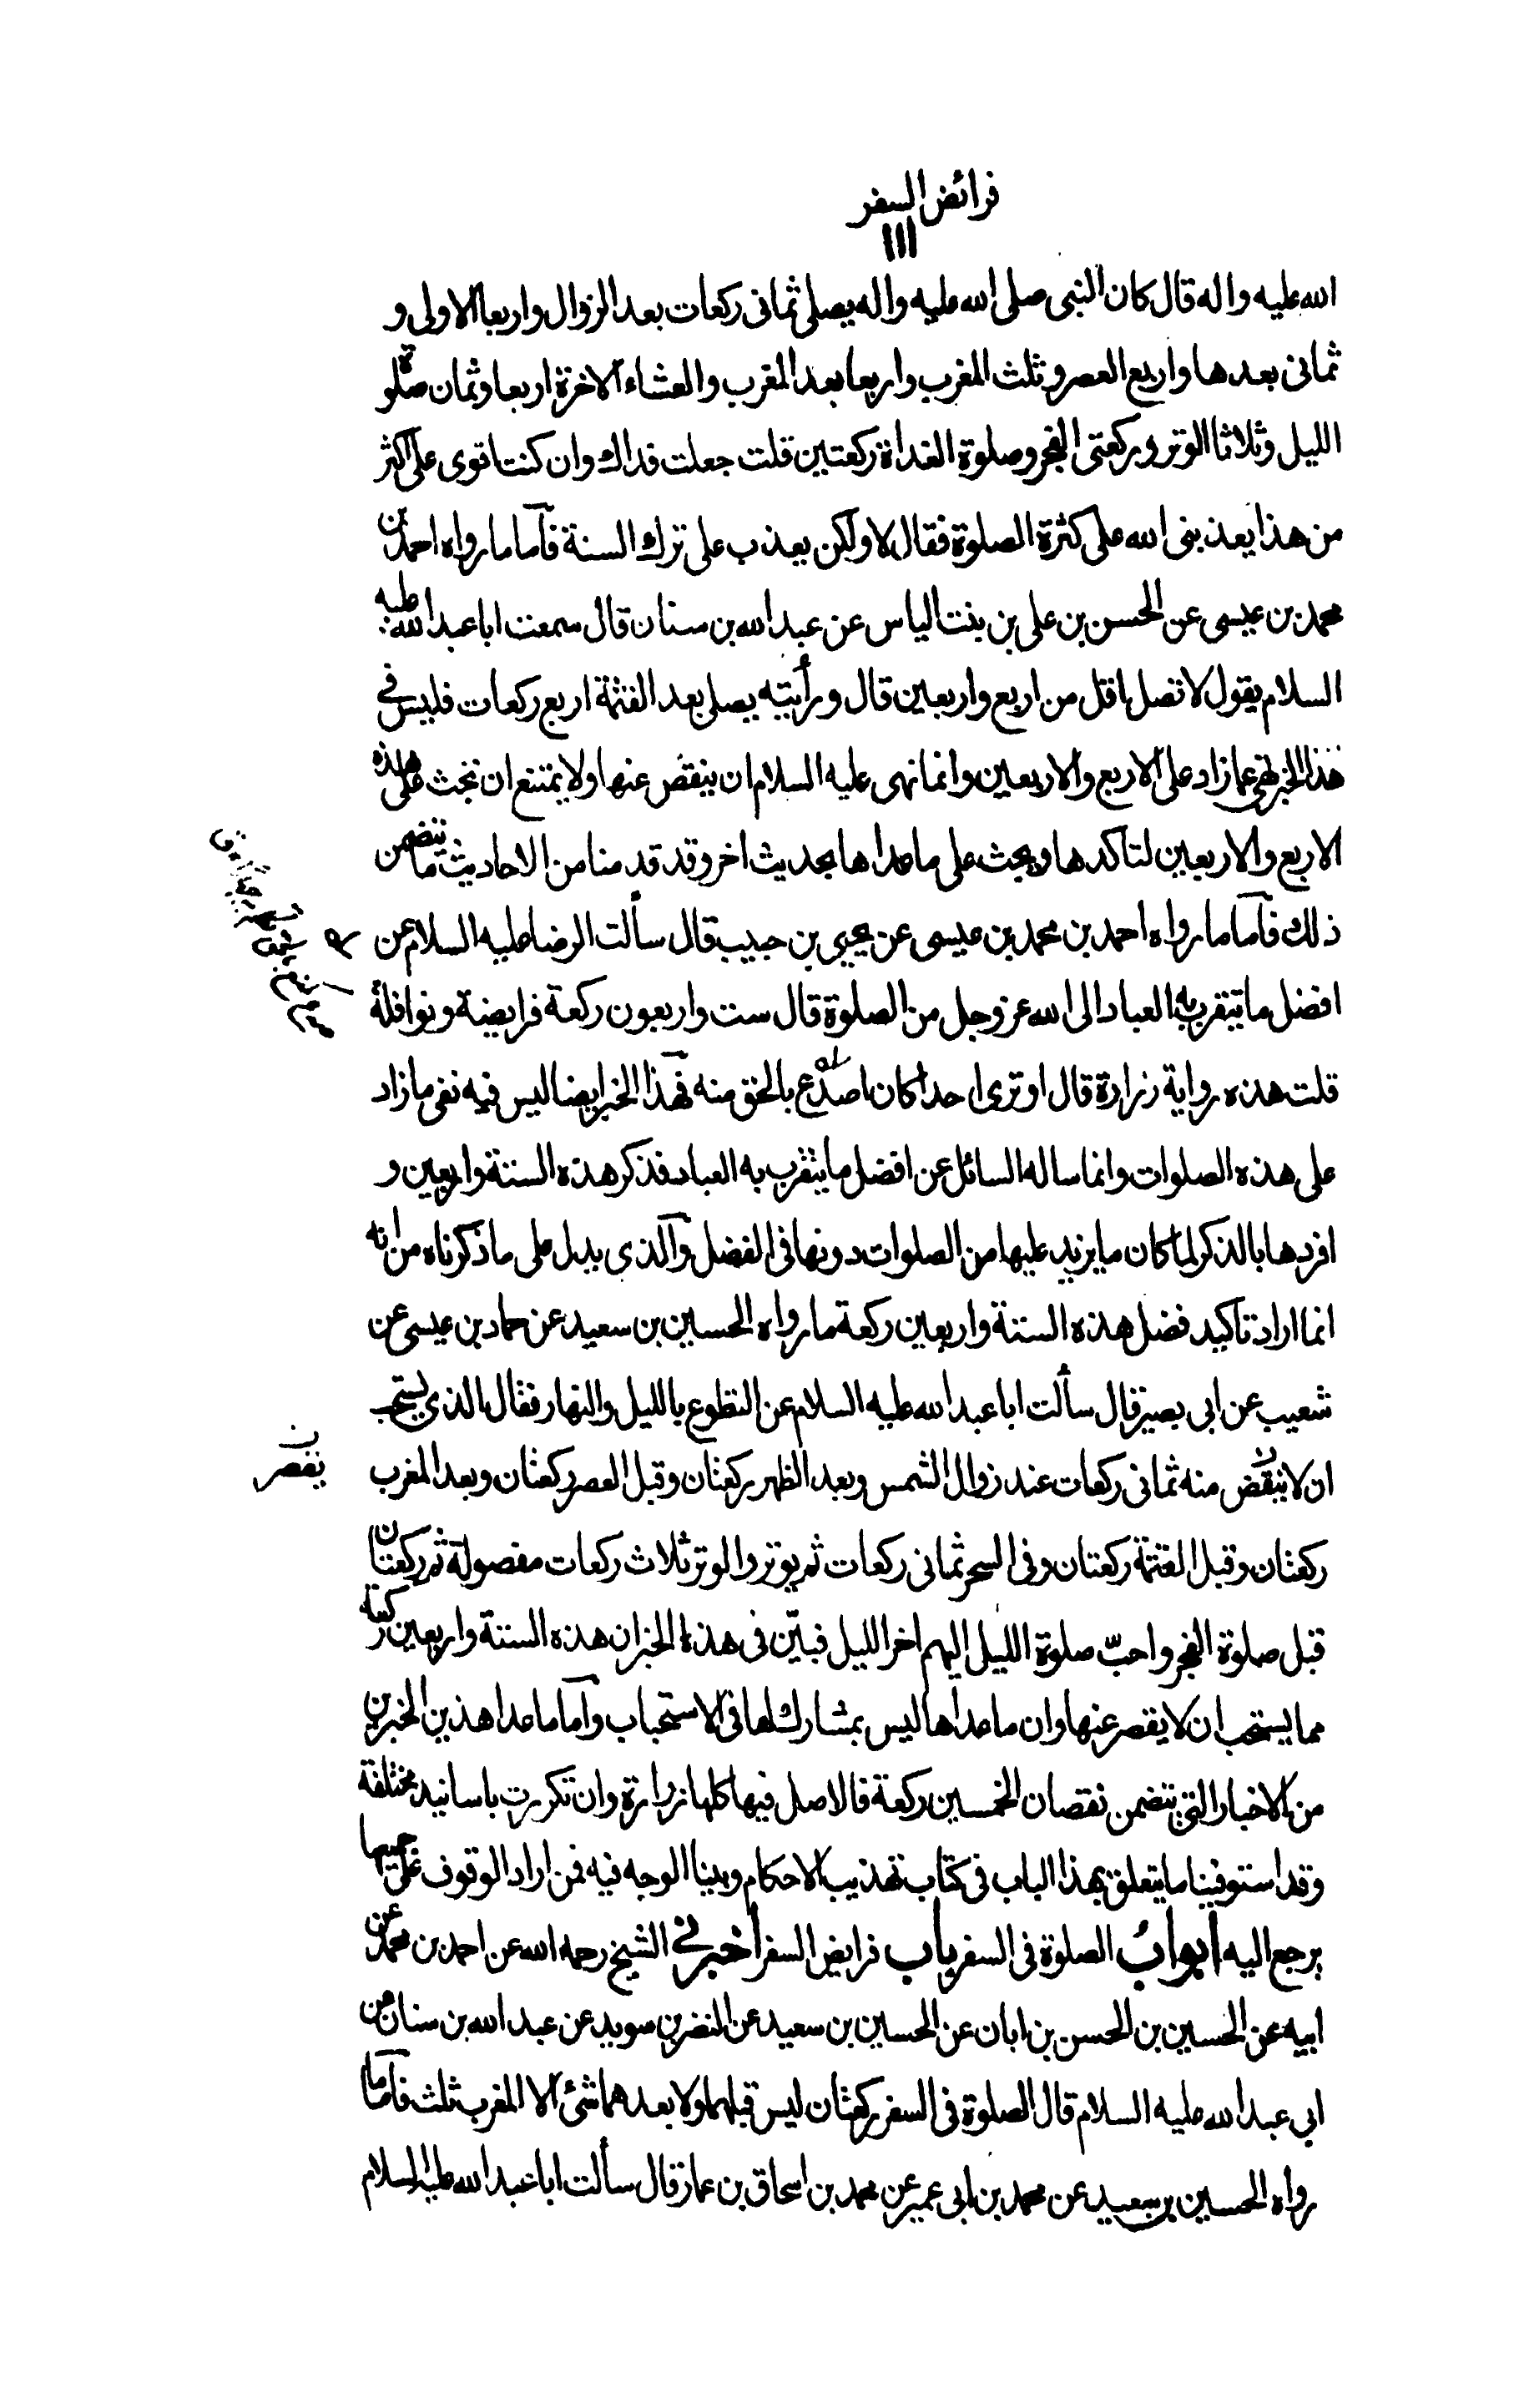 فرائض السفر
١١١
الله عليه واله قال كان النبى صلى الله عليه واله يصلى ثمانى ركعات بعد الزوال واربعا الاولى و
ثمانى بعدها واربع العصر وثلث المغرب واربعا بعد المغرب والعشاء الاخرة اربعا وثمان صلوة
الليل وثلاثا الوتر وركعتى الفجر وصلوة الغداة ركعتين قلت جعلت فداك وان كنت اقوى على اكثر
من هذا يعذبنى الله على كثرة الصلوة فقال لا ولكن يعذب على ترك السنة فآما ما رواه احمد بن
محمد بن عيسى عن الحسن بن على بن بنت الياس عن عبد الله بن سنان قال سمعت ابا عبد الله عليه
السلام يقول لا تصل اقل من اربع واربعين قال ورأيته يصلى بعد العتمة اربع ركعات فليس فى
هذا الخبر نهى عما زاد على الاربع والاربعين وانما نهى عليه السلام ان ينقص عنها ولا يمتنع ان يحث على هذه
الاربع والاربعين لتاكدها ويحث على ما عداها بحديث اخر وقد قدمنا من الاحاديث ما يتضمن
ذلك فآما ما رواه احمد بن محمد بن عيسى عن يحيى بن حبيب قال سألت الرضا عليه السلام عن
افضل ما يتقرب به العباد الى الله عز وجل من الصلوة قال ست واربعون ركعة فرايضه ونوافله
قلت هذه رواية زرارة قال اوترى احدا كان اصدع بالحق منه فهذا الخبر ايضا ليس فيه نفى ما زاد
على هذه الصلوات وانما ساله السائل عن افضل ما يتقرب به العباد فذكر هذه الستة واربعين و
افردها بالذكر لما كان ما يزيد عليها من الصلوات دونها فى الفضل وآلذى يدل على ما ذكرناه من انه
انما اراد تاكيد فضل هذه الستة واربعين ركعة ما رواه الحسين بن سعيد عن حماد بن عيسى عن
شعيب عن ابى بصير قال سألت ابا عبد الله عليه السلام عن التطوع بالليل والنهار فقال الذى يستحب
ان لا ينقص منه ثمانى ركعات عند زوال الشمس وبعد الظهر ركعتان وقبل العصر ركعتان وبعد المغرب
يقصر ن
ركعتان وقبل العتمة ركعتان وفى السحر ثمانى ركعات ثم يوتر والوتر ثلاث ركعات مفصولة ثم ركعتان
قبل صلوة الفجر واحبّ صلوة الليل اليهم اخر الليل فبيّن فى هذا الخبر ان هذه الستة واربعين ركعة
مما يستحب ان لا يقصر عنها وان ما عداها ليس بمشارك لها فى الاستحباب وآما ما عدا هذين الخبرين
من الاخبار التى تتضمن نقصان الخمسين ركعة فالاصل فيها كلها زرارة وان تكررت باسانيد مختلفة
وقد استوفينا ما يتعلق بهذا الباب فى كتاب تهذيب الاحكام وبينا الوجه فيه فمن اراد الوقوف على جميعها
يرجع اليه ابواب الصلوة فى السفر باب فرايض السفر أخبرنى الشيخ رحمه الله عن احمد بن محمد عن
ابيه عن الحسين بن الحسن بن ابان عن الحسين بن سعيد عن النضر بن سويد عن عبد الله بن سنان عن
ابى عبد الله عليه السلام قال الصلوة فى السفر ركعتان ليس قبلهما ولا بعدهما شئ الا المغرب ثلث فآما ما
رواه الحسين بن سعيد عن محمد بن ابى عمير عن محمد بن اسحاق بن عمار قال سألت ابا عبد الله عليه السلام